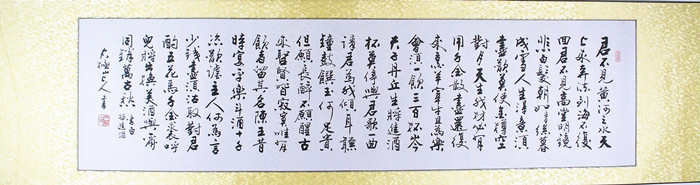 君不見黃河之水天
上來奔流到海不復
回君不見高堂明鏡
悲白髮朝如青絲暮
成雪人生得意須
盡歡莫使金樽空
對月天生我材必有
用千金散盡還復
來烹羊宰牛且為樂
會須一飲三百杯岑
夫子丹丘生將進酒
杯莫停與君歌一曲
請君為我傾耳聽
鐘鼓饌玉何足貴
但願長醉不願醒古
來聖賢皆寂寞唯有
飲者留其名陳王昔
時宴平樂斗酒十千
恣歡謔主人何為言
少錢逕須沽取對君
酌五花馬千金裘呼
兒將出換美酒與爾
同銷萬古愁 李白將進酒
山人書